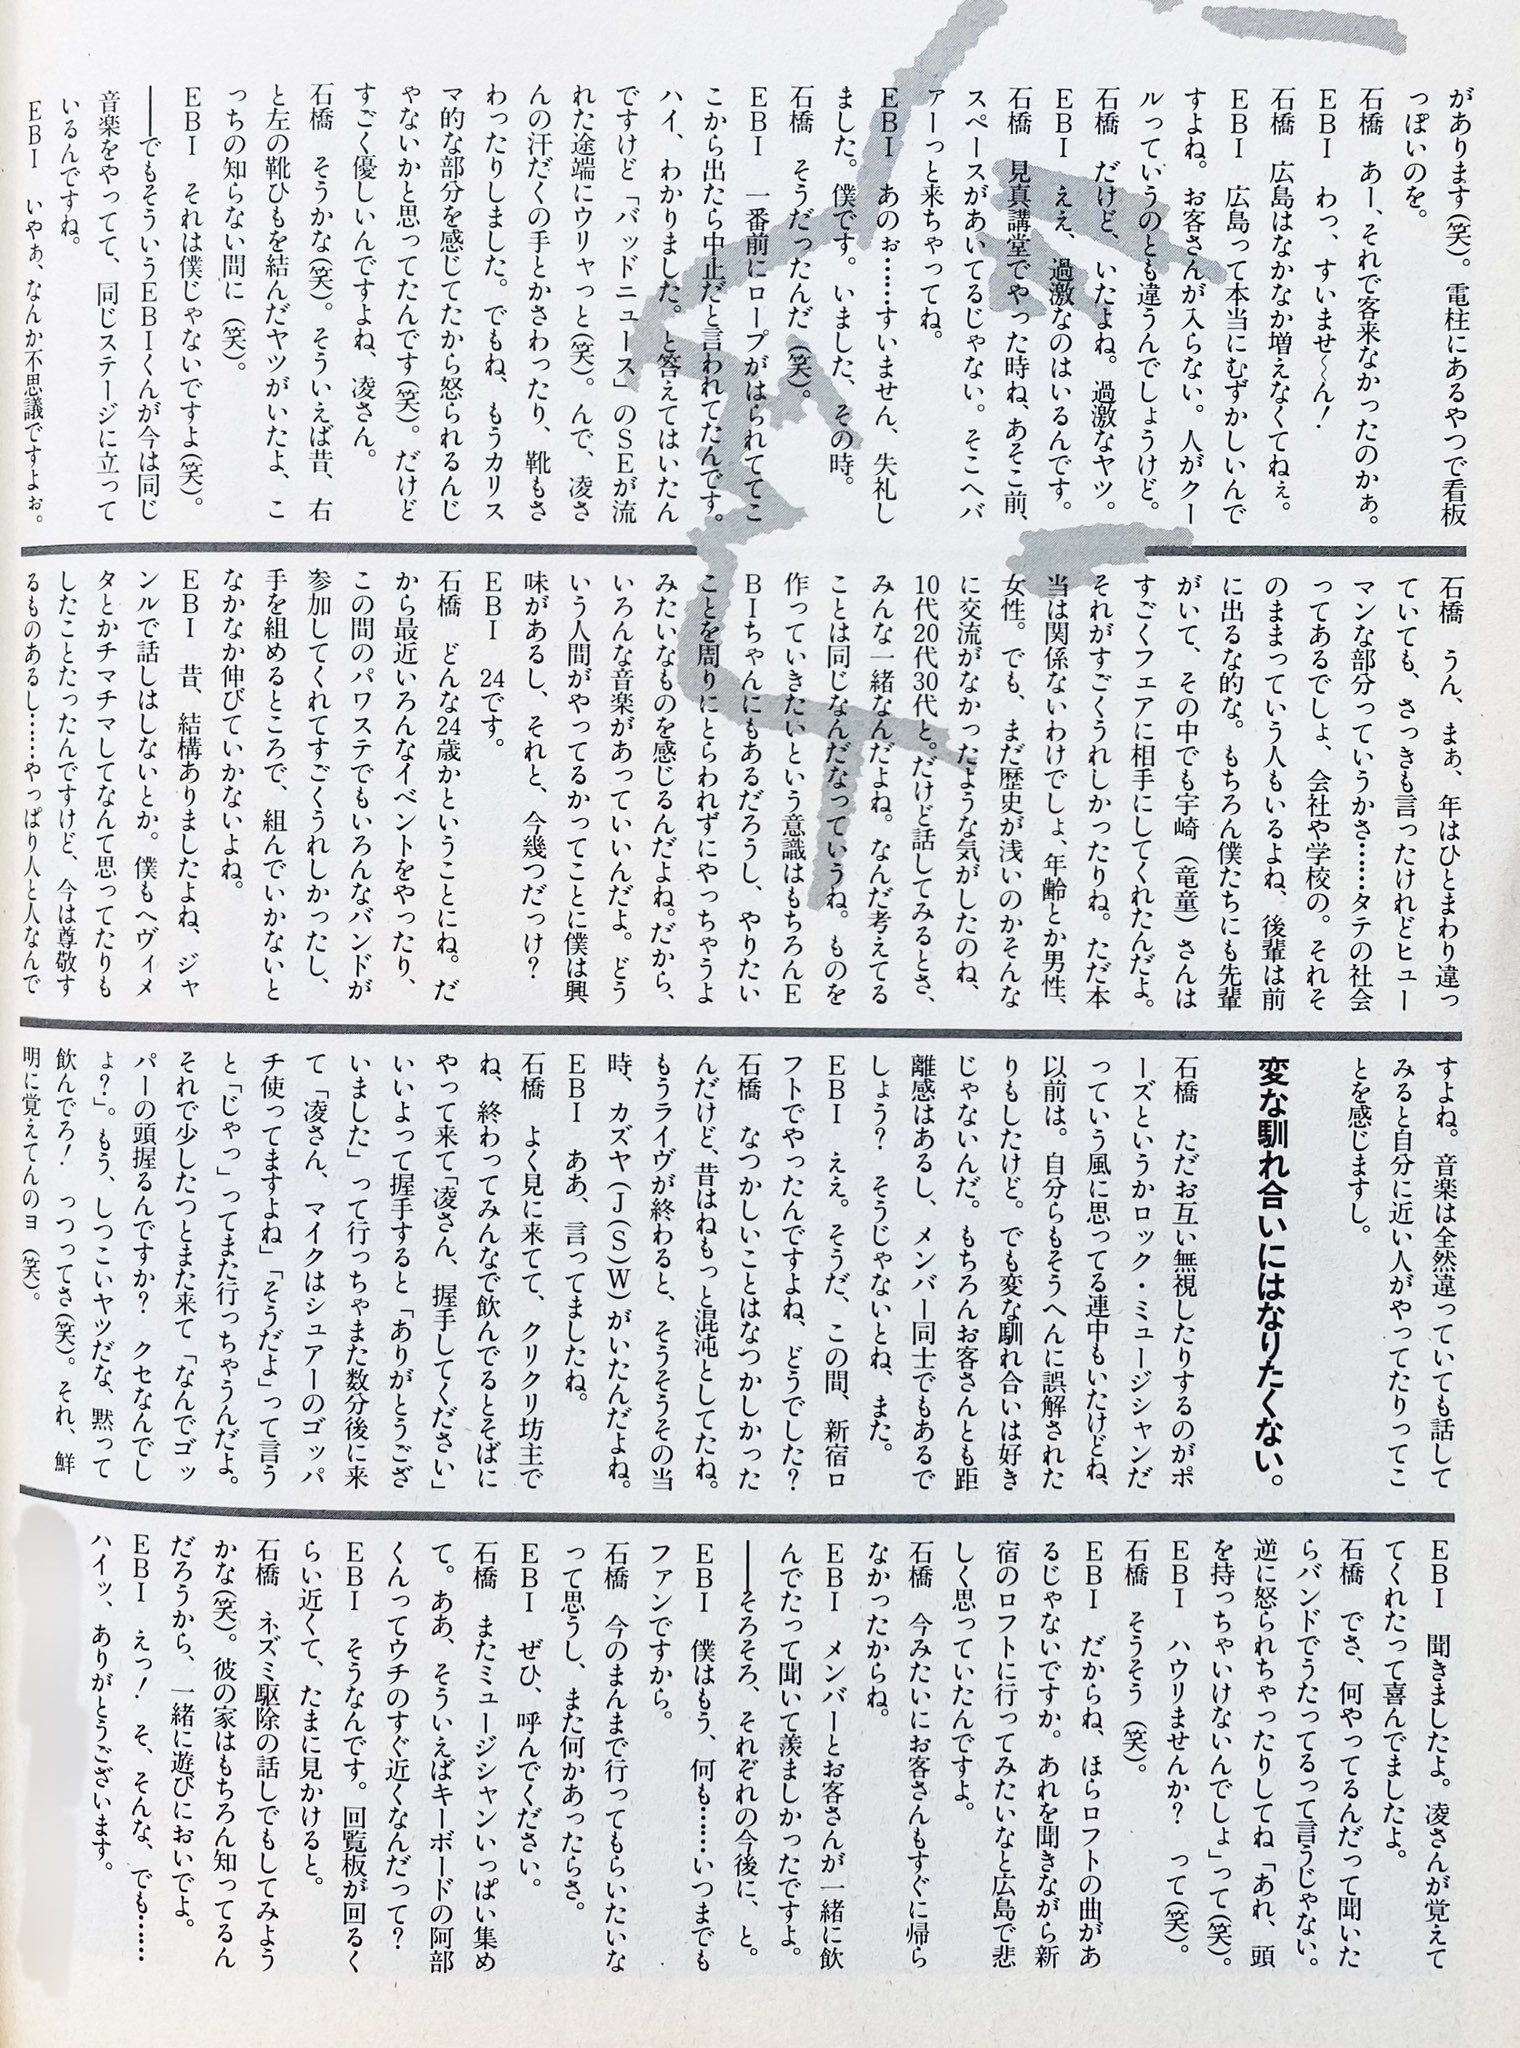 があります(笑)。電柱にあるやつで看板
っぽいのを。
石橋　あー、それで客来なかったのかぁ。
EBI　わっ、すいませ〜ん！
石橋　広島はなかなか増えなくてねぇ。
EBI　広島って本当にむずかしいんで
すよね。お客さんが入らない。人がクー
ルっていうのとも違うんでしょうけど。
石橋　だけど、いたよね。過激なヤツ。
EBI　ええ、過激なのはいるんです。
石橋　見真講堂でやった時ね、あそこ前、
スペースがあいてるじゃない。そこへバ
ァーっと来ちゃってね。
EBI　あのぉ……すいません、失礼し
ました。僕です。いました、その時。
石橋　そうだったんだ(笑)。
EBI　一番前にロープがはられててこ
こから出たら中止だと言われてたんです。
ハイ、わかりました。と答えてはいたん
ですけど「バッドニュース」のSEが流
れた途端にウリャっと(笑)。んで、凌さ
んの汗だくの手とかさわったり、靴もさ
わったりしました。でもね、もうカリス
マ的な部分を感じてたから怒られるんじ
ゃないかと思ってたんです(笑)。だけど
すごく優しいんですよね、凌さん。
石橋　そうかな(笑)。そういえば昔、右
と左の靴ひもを結んだヤツがいたよ、こ
っちの知らない間に(笑)。
EBI　それは僕じゃないですよ(笑)。
――でもそういうEBIくんが今は同じ
音楽をやってて、同じステージに立って
いるんですね。
EBI　いやぁ、なんか不思議ですよぉ。
石橋　うん、まぁ、年はひとまわり違っ
ていても、さっきも言ったけれどヒュー
マンな部分っていうかさ……タテの社会
ってあるでしょ、会社や学校の。それそ
のままっていう人もいるよね、後輩は前
に出るな的な。もちろん僕たちにも先輩
がいて、その中でも宇崎(竜童)さんは
すごくフェアに相手にしてくれたんだよ。
それがすごくうれしかったりね。ただ本
当は関係ないわけでしょ、年齢とか男性、
女性。でも、まだ歴史が浅いのかそんな
に交流がなかったような気がしたのね、
10代20代30代と。だけど話してみるとさ、
みんな一緒なんだよね。なんだ考えてる
ことは同じなんだなっていうね。ものを
作っていきたいという意識はもちろんE
BIちゃんにもあるだろうし、やりたい
ことを周りにとらわれずにやっちゃうよ
みたいなものを感じるんだよね。だから、
いろんな音楽があっていいんだよ。どう
いう人間がやってるかってことに僕は興
味があるし、それと、今幾つだっけ？
EBI　24です。
石橋　どんな24歳かということにね。だ
から最近いろんなイベントをやったり、
この間のパワステでもいろんなバンドが
参加してくれてすごくうれしかったし、
手を組めるところで、組んでいかないと
なかなか伸びていかないよね。
EBI　昔、結構ありましたよね、ジャ
ンルで話しはしないとか。僕もヘヴィメ
タとかチマチマしてなんて思ってたりも
したことたったんですけど、今は尊敬す
るものあるし……やっぱり人と人なんで
すよね。音楽は全然違っていても話して
みると自分に近い人がやってたりってこ
とを感じますし。
変な馴れ合いにはなりたくない。
石橋　ただお互い無視したりするのがポ
ーズというかロック・ミュージシャンだ
っていう風に思ってる連中もいたけどね、
以前は。自分らもそうへんに誤解された
りもしたけど。でも変な馴れ合いは好き
じゃないんだ。もちろんお客さんとも距
離感はあるし、メンバー同士でもあるで
しょう？　そうじゃないとね、また。
EBI　ええ。そうだ、この間、新宿ロ
フトでやったんですよね、どうでした？
石橋　なつかしいことはなつかしかった
んだけど、昔はねもっと混沌としてたね。
もうライヴが終わると、そうそうその当
時、カズヤ(J(S)W)がいたんだよね。
EBI　ああ、言ってましたね。
石橋　よく見に来てて、クリクリ坊主で
ね、終わってみんなで飲んでるとそばに
やって来て「凌さん、握手してください」
いいよって握手すると「ありがとうござ
いました」って行っちゃまた数分後に来
て「凌さん、マイクはシュアーのゴッパ
チ使ってますよね」「そうだよ」って言う
と「じゃっ」ってまた行っちゃうんだよ。
それで少したつとまた来て「なんでゴッ
パーの頭握るんですか？　クセなんでし
ょ？」。もう、しつこいヤツだな、黙って
飲んでろ！　っつってさ(笑)。それ、鮮
明に覚えてんのヨ(笑)。
EBI　聞きましたよ。凌さんが覚えて
てくれたって喜んでましたよ。
石橋　でさ、何やってるんだって聞いた
らバンドでうたってるって言うじゃない。
逆に怒られちゃったりしてね「あれ、頭
を持っちゃいけないんでしょ」って(笑)。
EBI　ハウリませんか？　って(笑)。
石橋　そうそう(笑)。
EBI　だからね、ほらロフトの曲があ
るじゃないですか。あれを聞きながら新
宿のロフトに行ってみたいなと広島で悲
しく思っていたんですよ。
石橋　今みたいにお客さんもすぐに帰ら
なかったからね。
EBI　メンバーとお客さんが一緒に飲
んでたって聞いて羨ましかったですよ。
――そろそろ、それぞれの今後に、と。
EBI　僕はもう、何も……いつまでも
ファンですから。
石橋　今のまんまで行ってもらいたいな
って思うし、また何かあったらさ。
EBI　ぜひ、呼んでください。
石橋　またミュージシャンいっぱい集め
て。ああ、そういえばキーボードの阿部
くんってウチのすぐ近くなんだって？
EBI　そうなんです。回覧板が回るく
らい近くて、たまに見かけると。
石橋　ネズミ駆除の話しでもしてみよう
かな(笑)。彼の家はもちろん知ってるん
だろうから、一緒に遊びにおいでよ。
EBI　えっ！　そ、そんな、でも……
ハイッ、ありがとうございます。